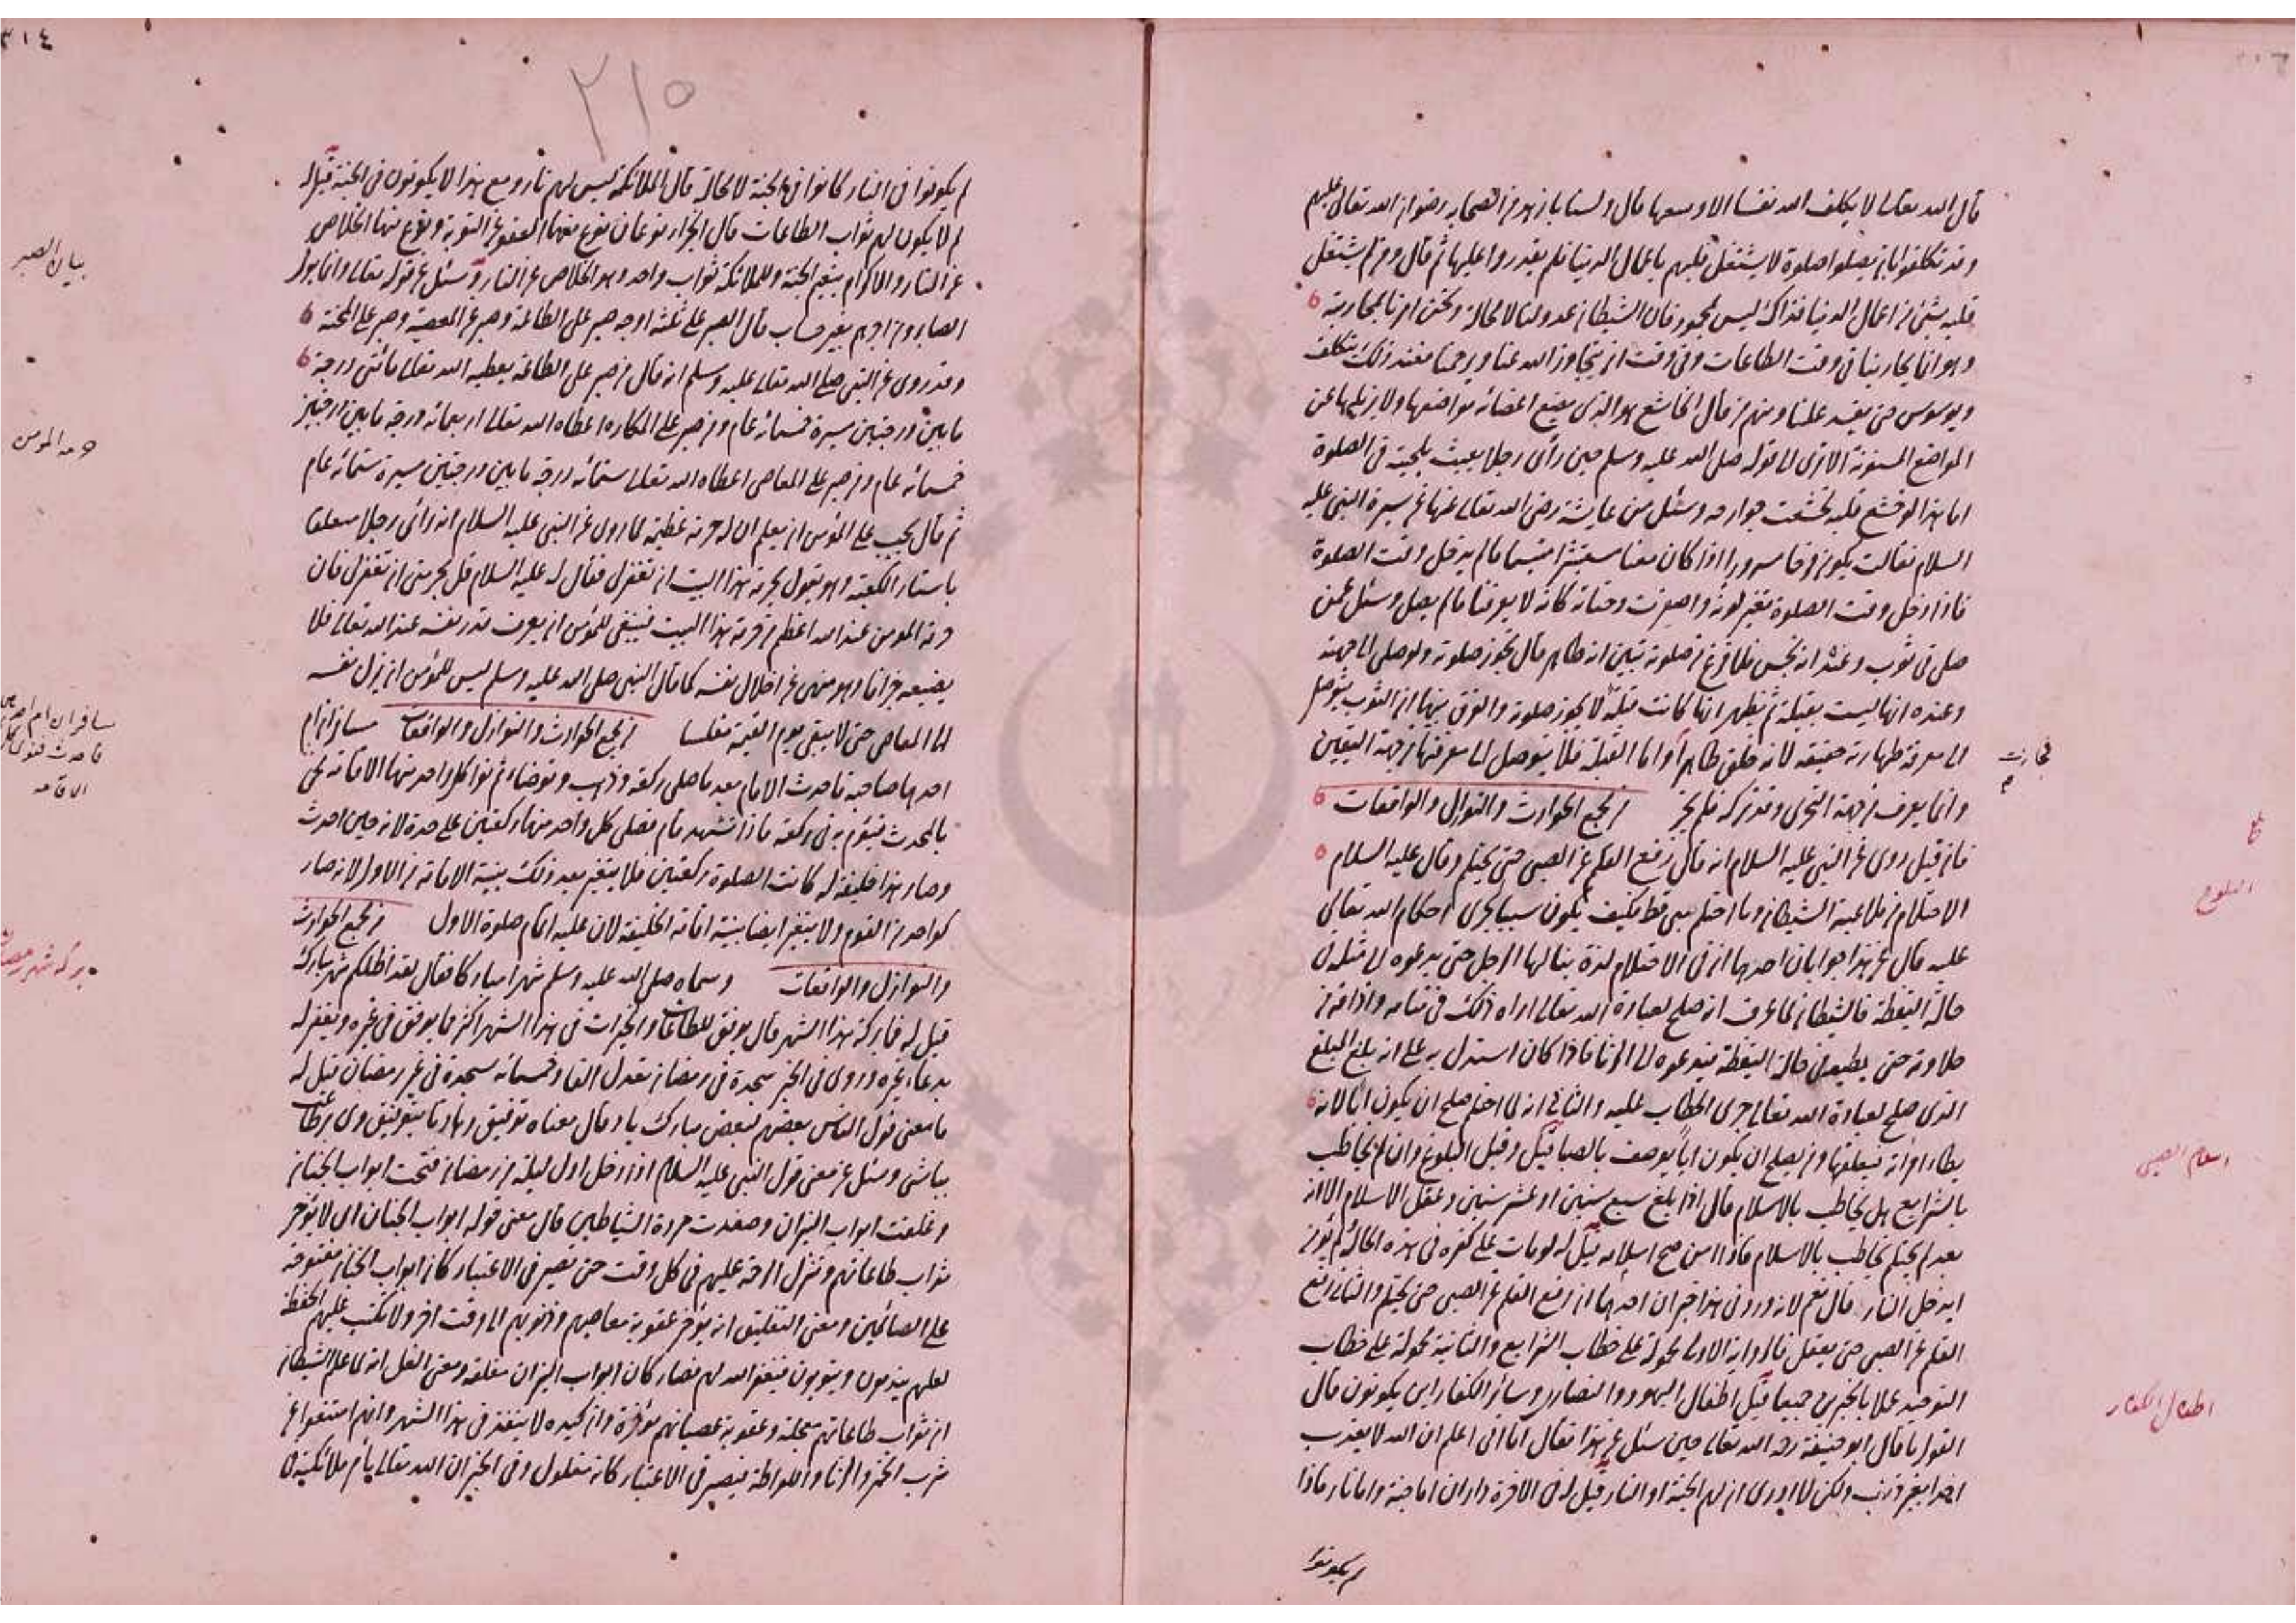 قال الله تعالى لا يكلف الله نفسا الا وسعها قال ولسنا بازهد من الصحابة رضوان الله تعالى عليهم
وقد تكلفوا بان يصلوا صلوة لا يشتغل قلبهم باعمال الدنيا فلم يقدروا عليها ثم قال ومن لم يشتغل
قلبه بشئ من اعمال الدنيا فذاك ليس بمحمود فان الشيطان عدو لنا لا محالة ونحن امرنا بمحاربته
وهو انما يحاربنا في وقت الطاعات وفي وقت ان يتجاوز الله عنا ويرحمنا فعند ذلك يتكلف
ويوسوس حتى يفسد علينا ومنهم من قال الخاشع هو الذي يضع اعضائه مواضعها ولا يزيلها عن
المواضع المسنونة الا ترى الى قوله صلى الله عليه وسلم حين رأى رجلا يعبث بلحيته في الصلوة
اما هذا لو خشع قلبه لخشعت جوارحه وسئل من عايشة رضى الله تعالى عنها عن سيرة النبي عليه
السلام فقالت يكون فرحا مسرورا اذا كان معنا مستبشرا متبسما ما لم يدخل وقت الصلوة
فاذا دخل وقت الصلوة تغير لونه واصفرت وجنتاه كانه لا يعرفنا ما لم يصل وسئل عمن
صلى في ثوب وعنده انه نجس فلما فرغ من صلوته تبين انه طاهر قال تجوز صلوته ولو صلى الى جهة
وعنده انها ليست بقبلة ثم يظهر انها كانت قبلة لا يجوز صلوته والفرق بينهما ان الثوب يتوصل
الى معرفة طهارته حقيقة لانه خلق طاهرا واما القبلة فلا يتوصل الى معرفتها من جهة اليقين
وانما يعرف من جهة التحرى وقد تركه فلم يجز من مجمع الحوادث والنوازل والواقعات
فان قيل روى عن النبي عليه السلام انه قال رفع القلم عن الصبي حتى يحتلم وقال عليه السلام
الاحتلام من ملاعبة الشيطان وما احتلم نبي قط فكيف يكون سببا لجرى احكام الله تعالى
عليه قال عن هذا جوابان احدهما ان في الاحتلام لذة ينالها الرجل حتى يدعوه الى مثله في
حالة اليقظة فالشيطان لما عرف انه صلح لعبادة الله تعالى اراه ذلك في منامه واذاقه من
حلاوته حتى يطيعه في حالة اليقظة فيدعوه الى الزنا فاذا كان استدل به على انه بلغ المبلغ
الذي صلح لعبادة الله تعالى جرى الخطاب عليه والثاني انه لما احتلم صلح ان يكون ابا لانه
يطاء امرأته فيعلقها ومن يصلح ان يكون ابا لا يوصف بالصبا قيل وقبل البلوغ وان لم يخاطب
بالشرايع هل يخاطب بالاسلام قال اذا بلغ سبع سنين او عشر سنين وعقل الاسلام الا انه
بعد لم يحتلم يخاطب بالاسلام فاذا امن صح اسلامه قيل له لو مات على كفره في هذه الحالة ولم يؤمن
ايدخل النار قال نعم لانه ورد في هذا خبران احدهما ان رفع القلم عن الصبي حتى يحتلم والثاني رفع
القلم عن الصبي حتى يعقل فالرواية الاولى محمولة على خطاب الشرايع والثانية محمولة على خطاب
التوحيد عملا بالخبرين جميعا قيل اطفال اليهود والنصارى وساير الكفار اين يكونون قال
القول ما قال ابو حنيفة رحمه الله تعالى حين سئل عن هذا فقال انا اعلم ان الله لا يعذب
احدا بغير ذنب ولكن لا ادرى انهم في الجنة او النار قيل له في الاخرة داران اما جنة واما نار فاذا
لم يكونوا
البلوغ
اسلام الصبي
اطفال الكفار
٣١٤
٢١٥
لم يكونوا في النار كانوا في الجنة لا محالة قال الملائكة ليس لهم نار ومع هذا لا يكونون في الجنة قيل له
لم لا يكون لهم ثواب الطاعات قال الجزاء نوعان نوع منها العفو عن التوبة ونوع منها الخلاص
عن النار والاكرام بنعيم الجنة وللملائكة ثواب واحد وهو الخلاص عن النار وسئل عن قوله تعالى وانما يوفى
الصابرون اجرهم بغير حساب قال الصبر على ثلثة اوجه صبر على الطاعة وصبر عن المعصية وصبر على المحنة
وقد روى عن النبي صلى الله تعالى عليه وسلم انه قال من صبر على الطاعة يعطيه الله تعالى مائتى درجة
ما بين درجتين مسيرة خمسمائة عام ومن صبر على المكاره اعطاه الله تعالى اربعمائة درجة ما بين درجتين
خمسمائة عام ومن صبر على المعاصي اعطاه الله تعالى ستمائة درجة ما بين درجتين مسيرة ستمائة عام
ثم قال يجب على المؤمن ان يعلم ان له حرمة عظيمة لما روى عن النبي عليه السلام انه رأى رجلا معلقا
باستار الكعبة وهو يقول بحرمة هذا البيت ان تغفر لي فقال له عليه السلام قل بحرمتى ان تغفر لي فان
حرمة المؤمن عند الله اعظم من حرمة هذا البيت فينبغى للمؤمن ان يعرف قدر نفسه عند الله تعالى فلا
يضيعه جزافا وهو منهى عن اذلال نفسه كما قال النبي صلى الله عليه وسلم ليس للمؤمن ان يذل نفسه
الى المعاصي حتى لا يبقى يوم القيمة مفلسا من مجمع الحوادث والنوازل والواقعات مسافران ام
احدهما صاحبه فاحدث الامام بعد ما صلى ركعة وذهب وتوضاء ثم نوا كل واحد منهما الاقامة لحى
بالمحدث فيؤم به في ركعة فاذا تشهد قام فصلى كل واحد منهما ركعتين على حدة لانه حين احدث
وصار هذا خليفة له كانت الصلوة ركعتين فلا يتغير بعد ذلك بنية الاقامة من الاول لانه صار
كواحد من القوم ولا يتغير ايضا بنية اقامة الخليفة لان عليه اتمام صلوة الاول من مجمع الحوادث
والنوازل والواقعات وسماه صلى الله عليه وسلم شهرا مباركا فقال لقد اظلكم شهر مبارك
قيل له فما بركة هذا الشهر قال يوفق للطاعات والخيرات في هذا الشهر اكثر مما يوفق في غيره ويغفر له
بدعاء غيره وروى في الخبر سجدة في رمضان تعدل الفا وخمسمائة سجدة في غير رمضان قيل له
ما معنى قول الناس بعضهم لبعض مبارك باد قال معناه توفيق دهاد تا بتوفيق وى در طاعت
باشى وسئل عن معنى قول النبي عليه السلام اذا دخل اول ليلة من رمضان فتحت ابواب الجنان
وغلقت ابواب النيران وصفدت مردة الشياطين قال معنى قوله ابواب الجنان اى لا يؤخر
ثواب طاعاتهم وتنزل الرحمة عليهم في كل وقت حتى تصير في الاعتبار كان ابواب الجنان مفتوحة
على الصائمين ومعنى التغليق انه يؤخر عقوبة معاصيهم وذنوبهم الى وقت اخر ولا تكتب عليهم الحفظة
لعلهم يندمون ويتوبون فيغفر الله لهم فصار كان ابواب النيران مغلقة ومعنى الغل انه لما علم الشيطان
ان ثواب طاعاتهم معجلة وعقوبة عصيانهم مؤخرة وان كيده لا ينفذ في هذا الشهر وانهم امتنعوا عن
شرب الخمر والزنا واللواطة فيصير في الاعتبار كانه مغلول وفي الخبر ان الله تعالى يأمر ملائكته في
بيان الصبر
حرمة المؤمن
مسافران ام احدهما
الاقامة
بركة شهر رمضان